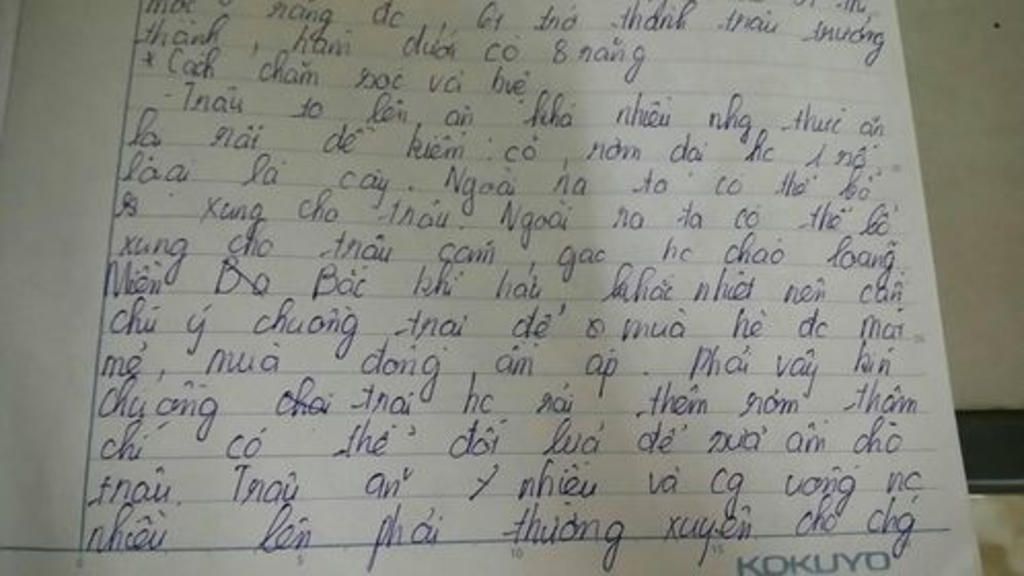 răng đc, để trở thành trâu trưởng
thành, hàm dưới có 8 răng
* Cách chăm sóc và
- Trâu to lên, ăn khá nhiều nhg thức ăn
là rất dễ kiếm: cỏ, rơm dại hc 1 số
lá cây. Ngoài ra ta có thể bổ
xung cho trâu. Ngoài ra ta có thể bổ
xung cho trâu cám, gạo hc cháo loãng.
Miền Bắc khí hậu khắc nhiệt nên cần
chú ý chuồng trại để mùa hè đc mát
mẻ, mùa đông ấm áp. Phải vây kín
chuồng trại hc rải thêm rơm thậm
chí có thể đốt lửa để sưởi ấm cho
trâu. Trâu ăn nhiều và cg uống nc
nhiều lên phải thường xuyên cho chg
KOKUYO